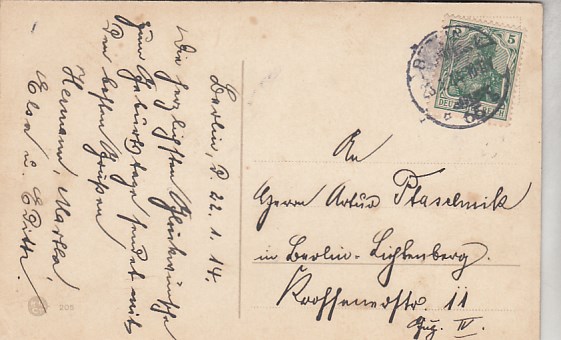 Berlin, d. 22.1.14.
Die herzlichsten Glückwünsche
zum Geburtstage sendet mit
den besten Grüßen
Hermann, Martha,
Elsa u. Editha.
An
Herrn Artur Ptaschnik
in Berlin-Lichtenberg.
Krossenerstr. 11
IV.
5
DEUTSCHES REICH
BERLIN
205